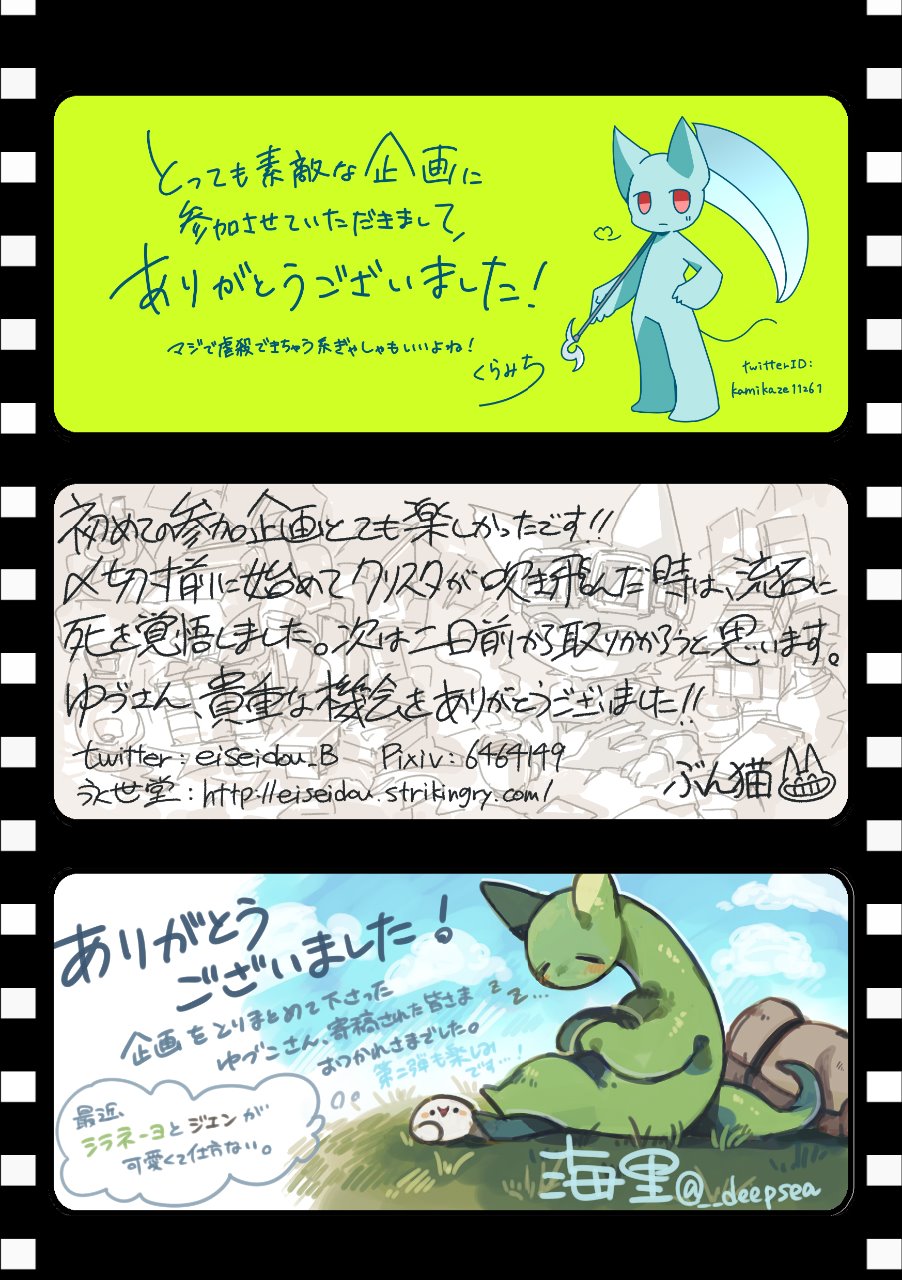 とっても素敵な企画に
参加させていただきまして、
ありがとうございました！
マジで虐殺できちゃう系ぎゃしゃもいいよね！
くらみち
twitterID:
kamikaze11261
初めての参加企画とても楽しかったです!!
〆切寸前に始めてクリスタが吹き飛んだ時は、流石に
死を覚悟しました。次は二日前から取りかかろうと思います。
ゆづさん、貴重な機会をありがとうございました!!
twitter:eiseidou_B Pixiv:6464149
永世堂:http://eiseidou.strikingry.com/
ぶん猫
ありがとう
ございました！
企画をとりまとめて下さった
ゆづこさん、寄稿された皆さま
おつかれさまでした。
第二弾も楽しみ
です…！
z z…
最近、
シラネーヨとジエンが
可愛くて仕方ない。
海里@__deepsea